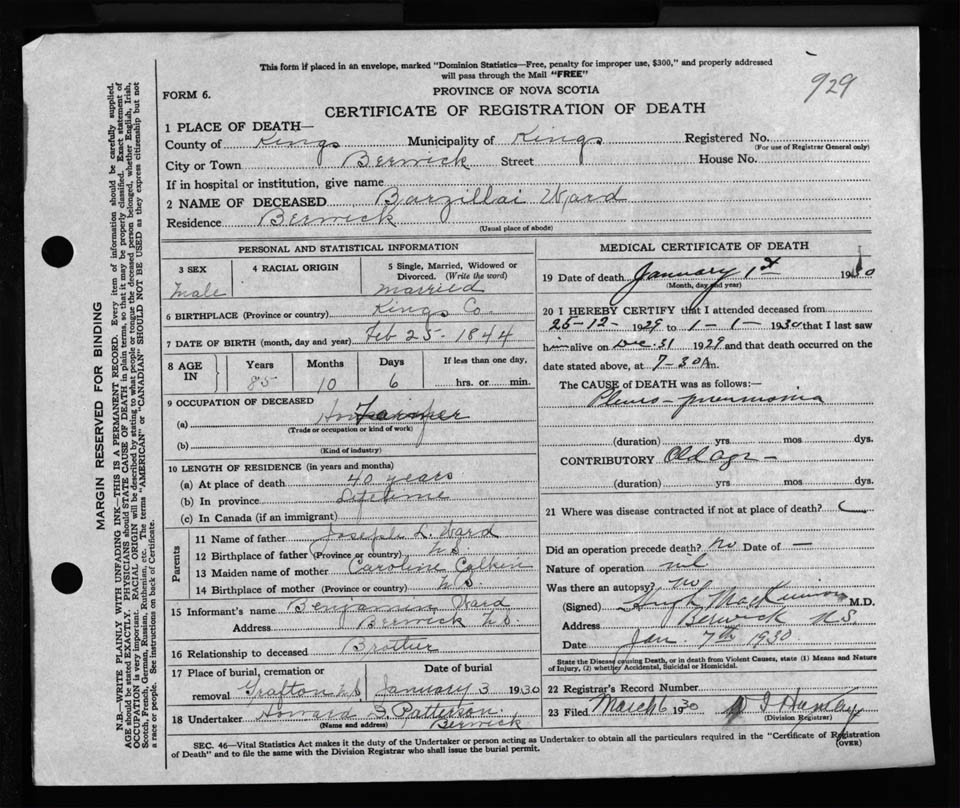 929
This form if placed in an envelope, marked "Dominion Statistics—Free, penalty for improper use, $300," and properly addressed
will pass through the Mail "FREE"
FORM 6.
PROVINCE OF NOVA SCOTIA
CERTIFICATE OF REGISTRATION OF DEATH
1 PLACE OF DEATH—
County of Kings Municipality of Kings Registered No.
(For use of Registrar General only)
City or Town Berwick Street House No.
If in hospital or institution, give name
2 NAME OF DECEASED Barzillai Ward
Residence Berwick
(Usual place of abode)
PERSONAL AND STATISTICAL INFORMATION
3 SEX 4 RACIAL ORIGIN 5 Single, Married, Widowed or
Divorced. (Write the word)
Male Married
6 BIRTHPLACE (Province or country) Kings Co.
7 DATE OF BIRTH (month, day and year) Feb 25 - 1844
8 AGE IN Years Months Days If less than one day,
85 10 6 hrs. or min.
9 OCCUPATION OF DECEASED
(a) Farmer
(Trade or occupation or kind of work)
(b)
(Kind of industry)
10 LENGTH OF RESIDENCE (in years and months)
(a) At place of death 40 years
(b) In province Lifetime
(c) In Canada (if an immigrant)
Parents
11 Name of father Joseph L. Ward
12 Birthplace of father (Province or country) N.S.
13 Maiden name of mother Caroline
14 Birthplace of mother (Province or country) N.S.
15 Informant's name Benjamin Ward
Address Berwick N.S.
16 Relationship to deceased Brother
17 Place of burial, cremation or Date of burial
removal Grafton N.S. January 3 1930
18 Undertaker Howard S. Patterson
(Name and address) Berwick
MEDICAL CERTIFICATE OF DEATH
19 Date of death January 1st 1930
(Month, day and year)
20 I HEREBY CERTIFY that I attended deceased from
25-12-1929 to 1-1-1930 that I last saw
him alive on Dec. 31 1929 and that death occurred on the
date stated above, at 7-30 A m.
The CAUSE of DEATH was as follows:—
Pleuro-pneumonia
(duration) yrs mos dys.
CONTRIBUTORY Old age -
(duration) yrs mos dys.
21 Where was disease contracted if not at place of death?
Did an operation precede death? no Date of —
Nature of operation nil
Was there an autopsy? no
(Signed) Hugh MacKinnon M.D.
Address Berwick N.S.
Date Jan. 7th 1930.
State the Disease causing Death, or in death from Violent Causes, state (1) Means and Nature
of Injury, (2) whether Accidental, Suicidal or Homicidal.
22 Registrar's Record Number
23 Filed March 6 1930 Huntley
(Division Registrar)
SEC. 46—Vital Statistics Act makes it the duty of the Undertaker or person acting as Undertaker to obtain all the particulars required in the "Certificate of Registration
of Death" and to file the same with the Division Registrar who shall issue the burial permit.
(OVER)
MARGIN RESERVED FOR BINDING
N.B.—WRITE PLAINLY WITH UNFADING INK—THIS IS A PERMANENT RECORD. Every item of information should be carefully supplied.
AGE should be stated EXACTLY. PHYSICIANS should STATE CAUSE OF DEATH in plain terms, so that it may be properly classified. Exact statement of
OCCUPATION is very important. RACIAL ORIGIN will be described by stating to what people or tongue the deceased person belonged, whether English, Irish,
Scotch, French, German, Russian, Ruthenian, etc. The terms "AMERICAN" or "CANADIAN" SHOULD NOT BE USED as they express citizenship but not
a race or people. See instructions on back of Certificate.